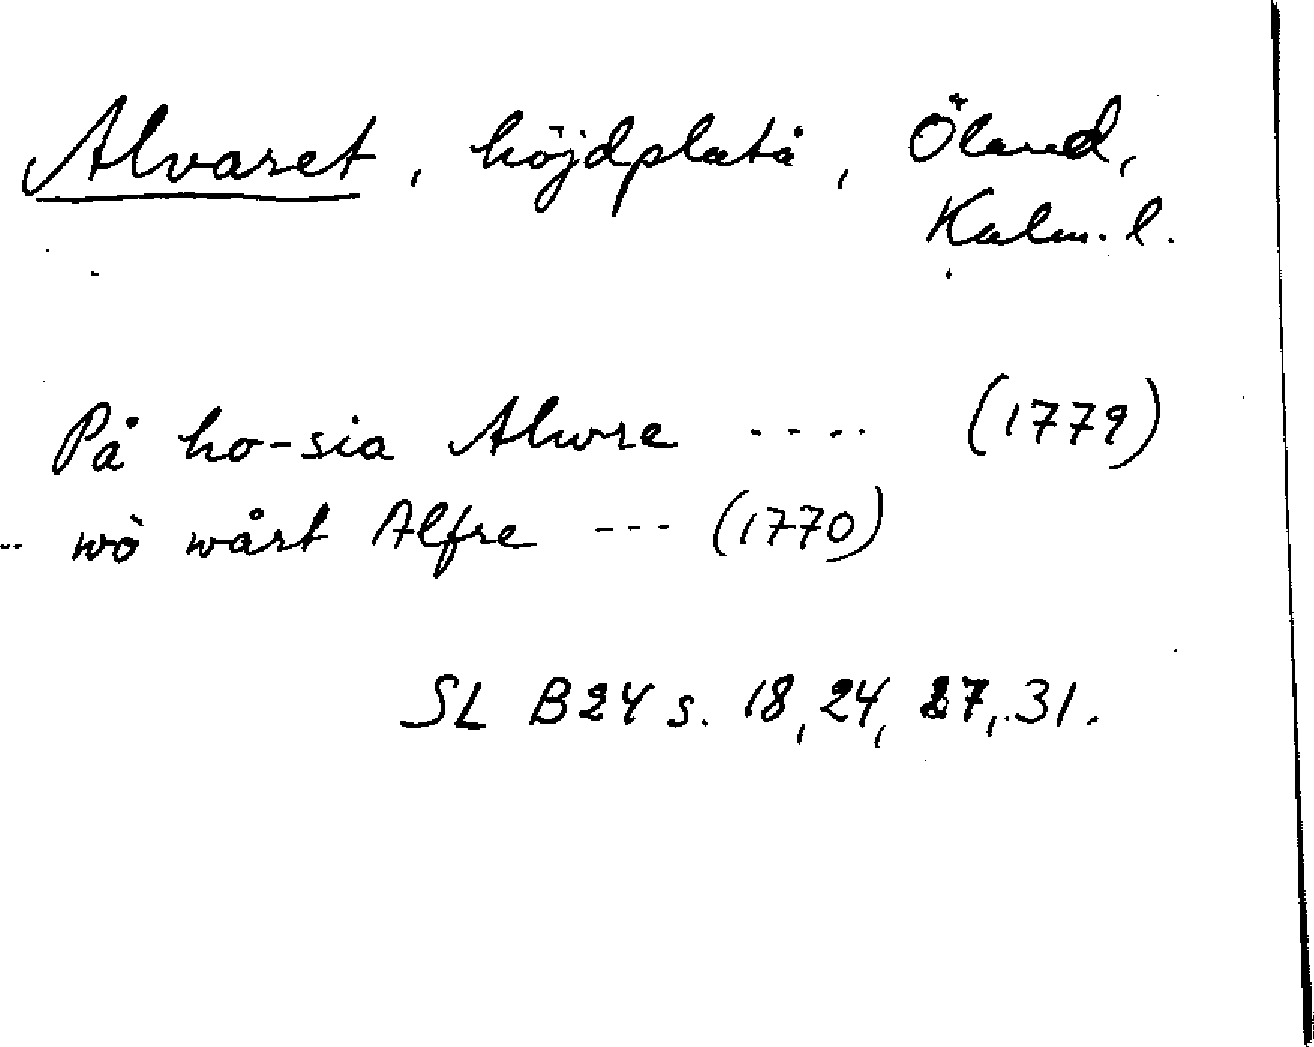 Alvaret, höjdplatå, Öland,
Kalm. l.
På ho-sia Alwre .... (1779)
.. wò wårt Alfre --- (1770)
SL B24 s. 18, 24, 27, 31.